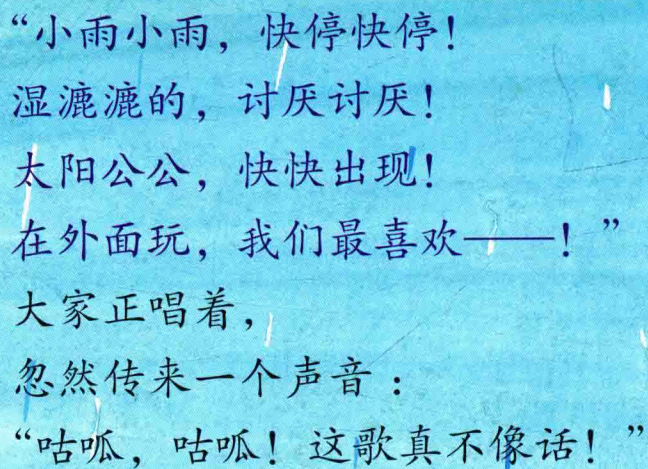 “小雨小雨，快停快停！
湿漉漉的，讨厌讨厌！
太阳公公，快快出现！
在外面玩，我们最喜欢——！”
大家正唱着，
忽然传来一个声音：
“咕呱，咕呱！这歌真不像话！”